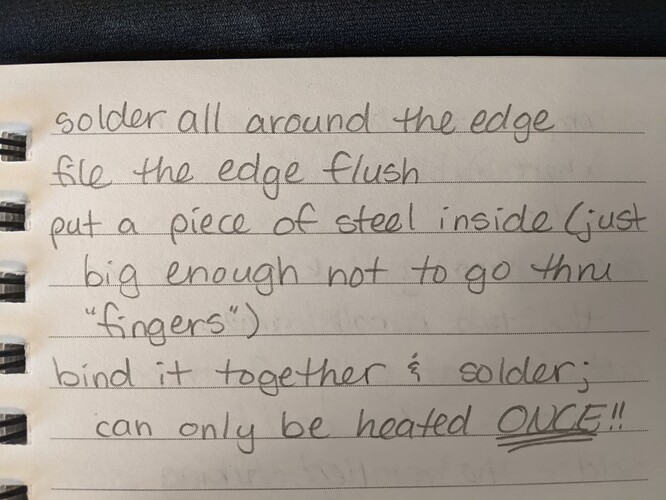 solder all around the edge
file the edge flush
put a piece of steel inside (just
big enough not to go thru
"fingers")
bind it together & solder;
can only be heated ONCE!!